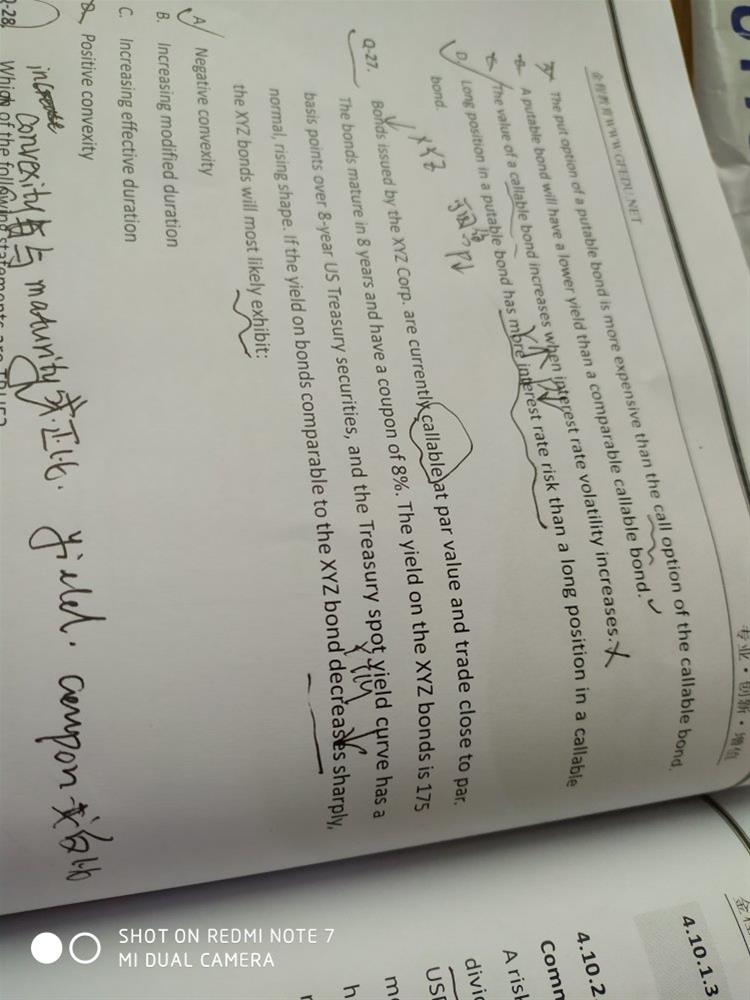 金程教育WWW.GFEDU.NET
专业·创新·增值
The put option of a putable bond is more expensive than the call option of the callable bond.
A putable bond will have a lower yield than a comparable callable bond.
The value of a callable bond increases when interest rate volatility increases.
D Long position in a putable bond has more interest rate risk than a long position in a callable
bond.
XYZ
Q-27.
Bonds issued by the XYZ Corp. are currently callable at par value and trade close to par.
The bonds mature in 8 years and have a coupon of 8%. The yield on the XYZ bonds is 175
basis points over 8-year US Treasury securities, and the Treasury spot yield curve has a
normal, rising shape. If the yield on bonds comparable to the XYZ bond decreases sharply,
the XYZ bonds will most likely exhibit:
A Negative convexity
B. Increasing modified duration
C. Increasing effective duration
Positive convexity
increase
Convexity 与 maturity 成正比. yield. coupon 成反比
Q-28
Which of the following statements are TRUE?
4.10.1.3
4.10.2
Comm
A risk
divid
USD
SHOT ON REDMI NOTE 7
MI DUAL CAMERA